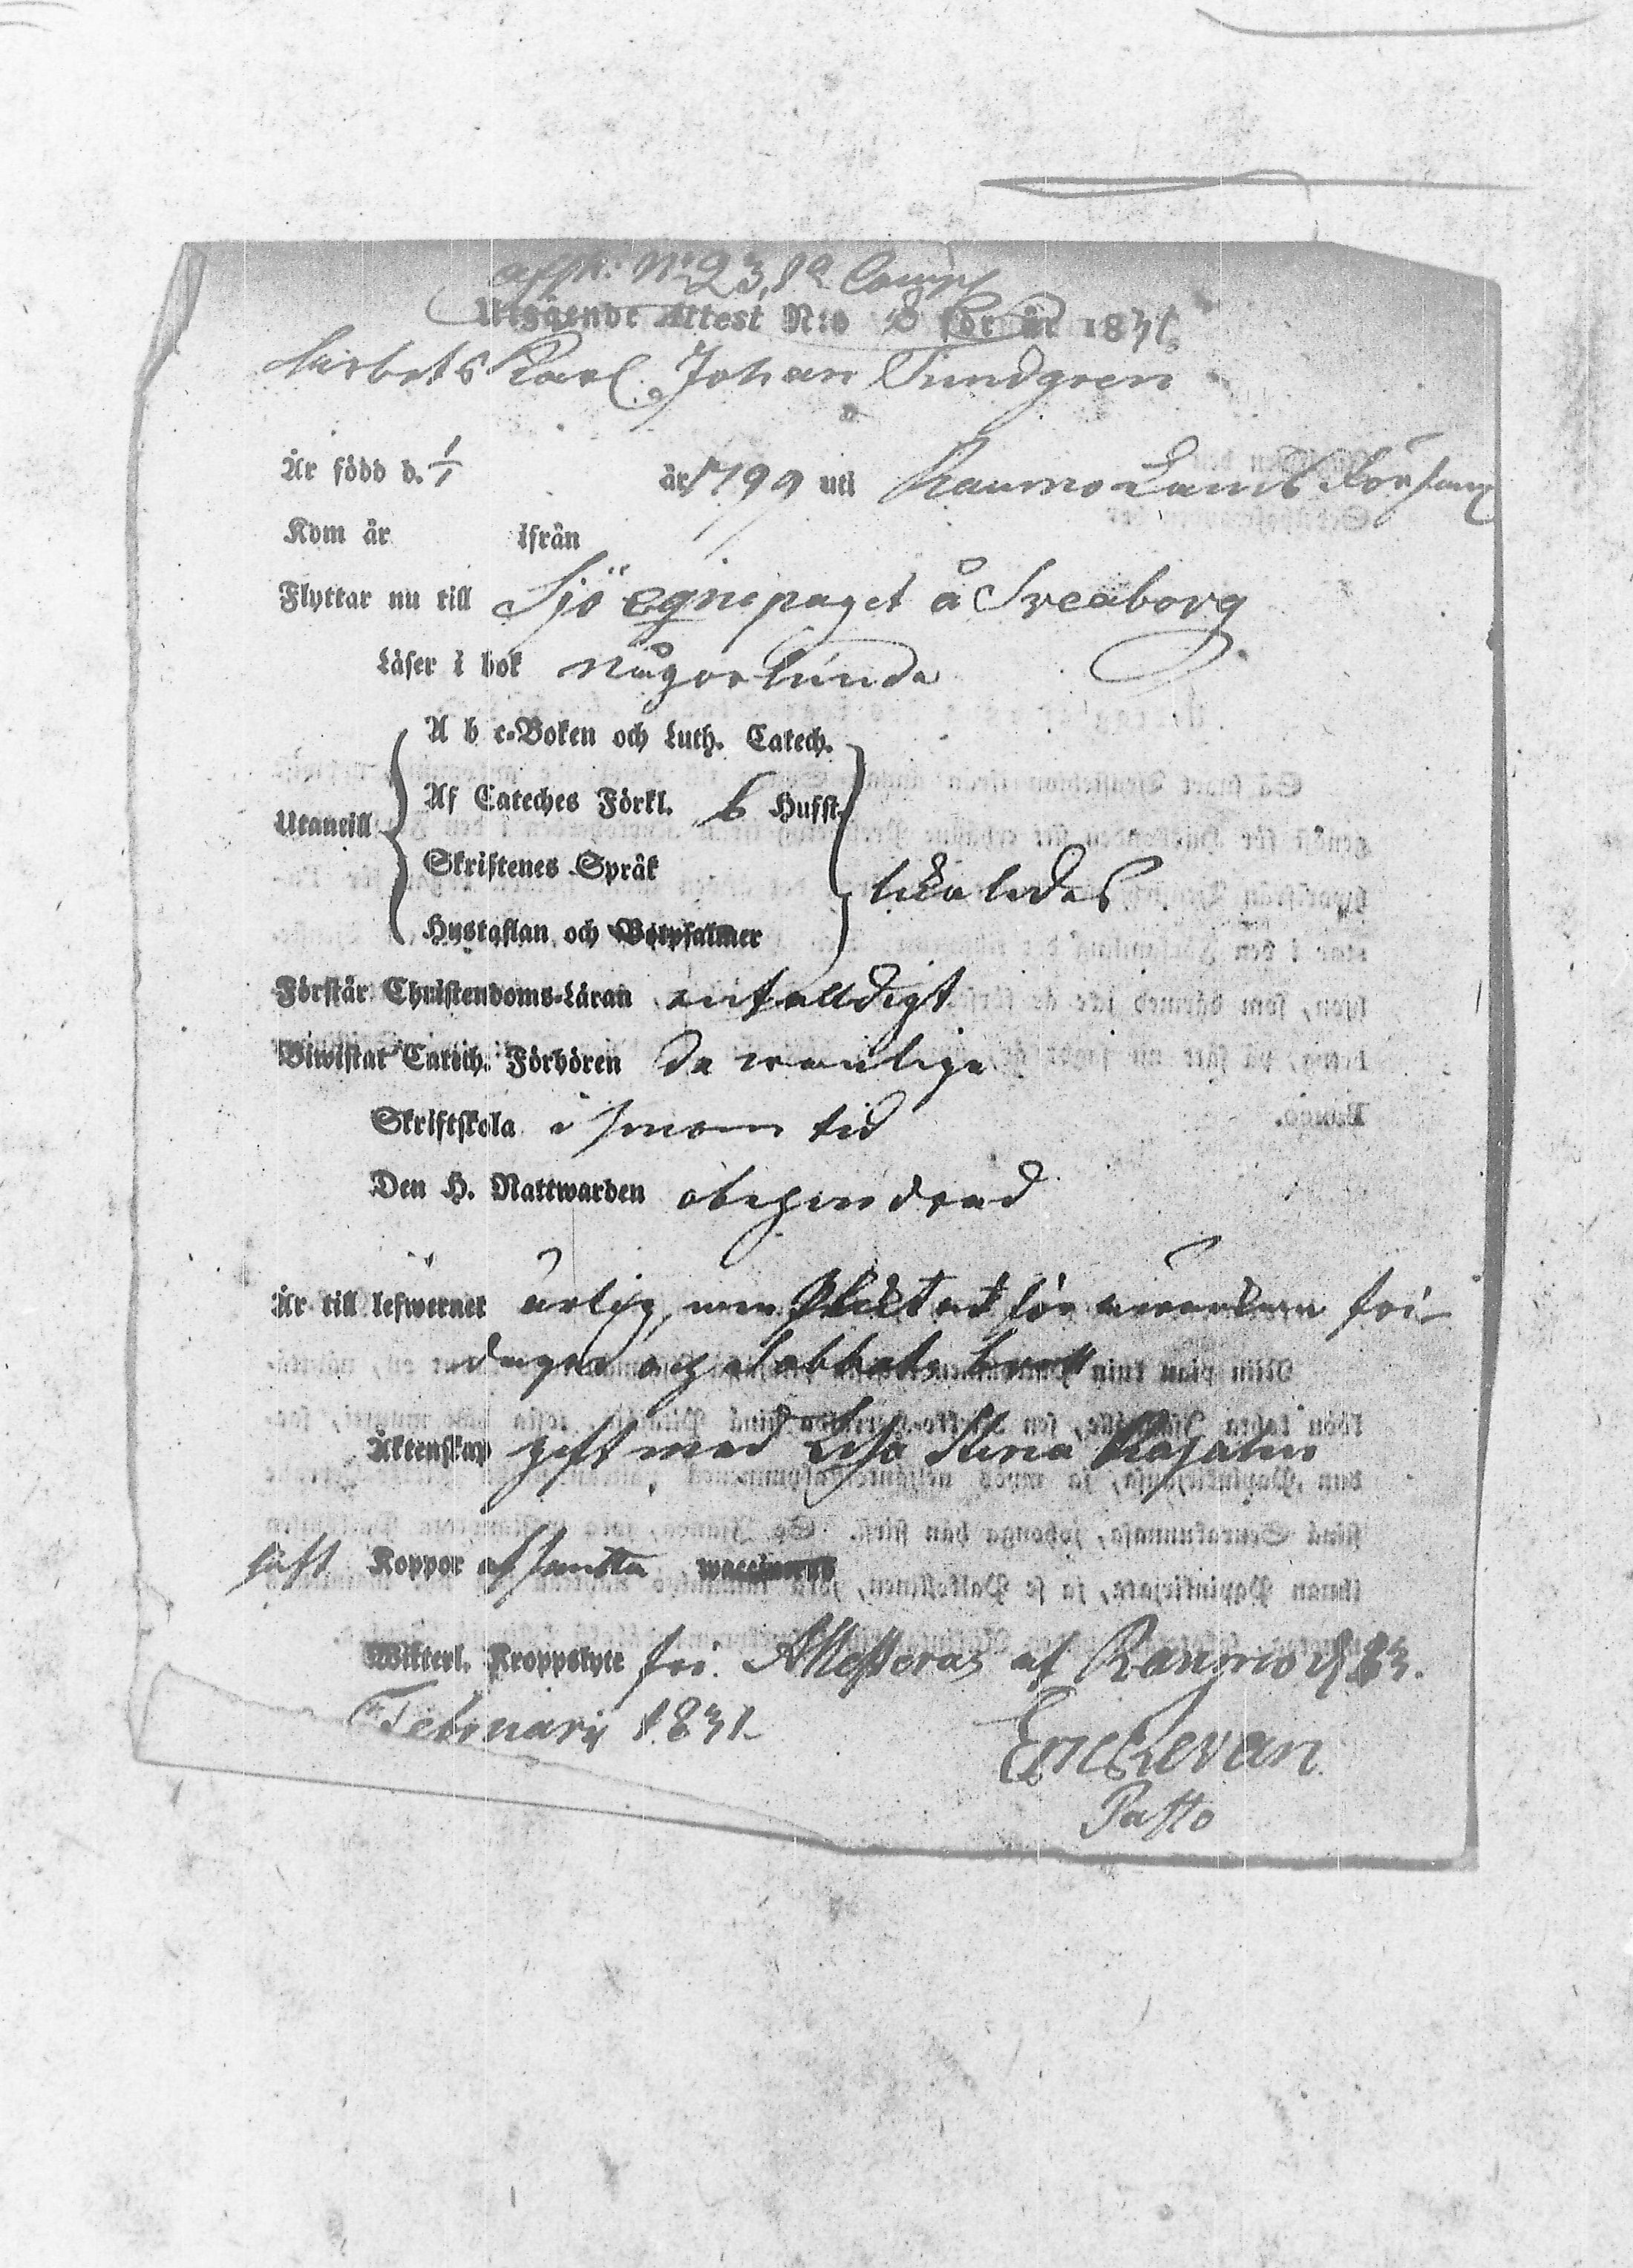 N:o 23, 1a Comp
Utgående Attest N:o för år 1831.
Arbets Karl. Johan Sundgren
Är född d. 1/1 år 1799 uti Raumo Lands Församl
Kom år ifrån
Flyttar nu till Sjö eqvipaget å Sveaborg
Läser i bok någorlunda
A b c-Boken och Luth. Catech.
Utantill Af Cateches Förkl. 6 Hufst.
Skriftenes Språk likaledes
Hustaflan och Botpsalmer
Förstår Christendoms-Läran enfalldigt
Biwistat Catech. Förhören de vanlige
Skriftskola i sinom tid
Den H. Nattwarden obehindrad
Är till lefwernet ärlig, men pliktat för fri-
och sabbats brott
Äktenskap gift med Lisa Stina
haft Koppor
Witterl. Kroppslyte fri. Attesteras af Raumo d 23.
Februarii 1831
Eric Levan
Pasto